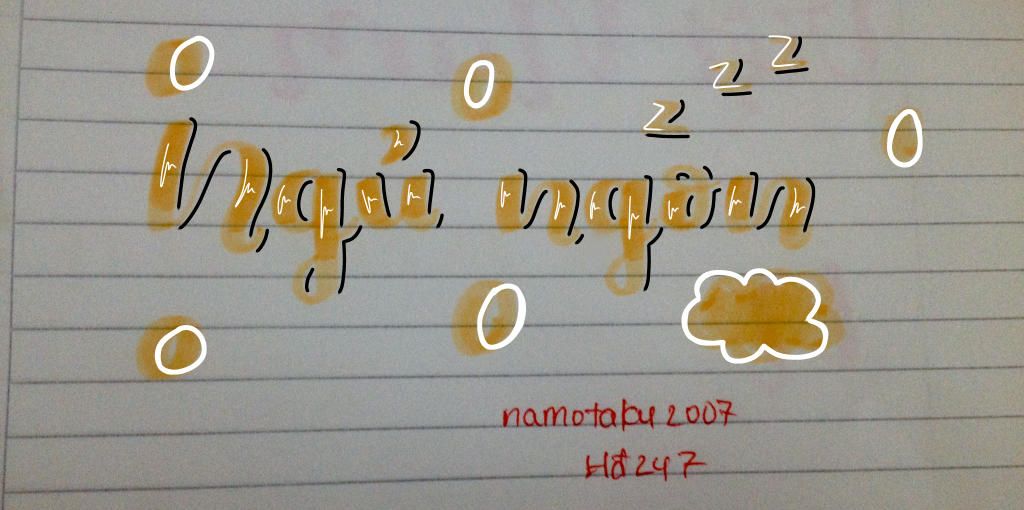 z z z
Ngủ ngon
namotaku2007
Hd247